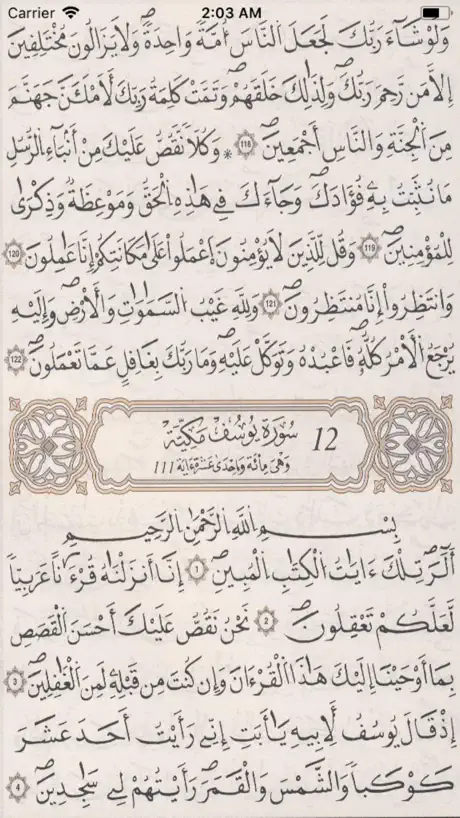 Carrier 2:03 AM
وَلَوْ شَآءَ رَبُّكَ لَجَعَلَ النَّاسَ أُمَّةً وَاحِدَةً وَلَا يَزَالُونَ مُخْتَلِفِينَ
إِلَّا مَن رَّحِمَ رَبُّكَ وَلِذَٰلِكَ خَلَقَهُمْ وَتَمَّتْ كَلِمَةُ رَبِّكَ لَأَمْلَأَنَّ جَهَنَّمَ
مِنَ اَلْجِنَّةِ وَالنَّاسِ أَجْمَعِينَ 118 * وَكُلّاً نَّقُصُّ عَلَيْكَ مِنْ أَنۢبَآءِ الرُّسُلِ
مَا نُثَبِّتُ بِهِۦ فُؤَادَكَ وَجَآءَكَ فِي هَٰذِهِ اِلْحَقُّ وَمَوْعِظَةٌ وَذِكْرَىٰ
لِلْمُؤْمِنِينَ 119 وَقُل لِّلَّذِينَ لَا يُؤْمِنُونَ اَعْمَلُواْ عَلَىٰ مَكَانَتِكُمْ إِنَّا عَامِلُونَ 120
وَانتَظِرُواْ إِنَّا مُنتَظِرُونَ 121 وَلِلهِ غَيْبُ السَّمَٰوَٰتِ وَالْأَرْضِ وَإِلَيْهِ
يُرْجَعُ اُلْأَمْرُ كُلُّهُۥ فَاعْبُدْهُ وَتَوَكَّلْ عَلَيْهِ وَمَا رَبُّكَ بِغَٰفِلٍ عَمَّا تَعْمَلُونَ 122
12 سُورَةُ يُوسُفَ مَكِّيَّةٌ
وَهْيَ مِائَةٌ وَإِحْدَىٰ عَشْرَةَ ءَايَةً 111
بِسْمِ اللَّهِ الرَّحْمَٰنِ الرَّحِيمِ
أَلَٓر تِلْكَ ءَايَٰتُ الْكِتَٰبِ الْمُبِينِ 1 إِنَّا أَنزَلْنَٰهُ قُرْءَٰناً عَرَبِيّاً
لَّعَلَّكُمْ تَعْقِلُونَ 2 نَحْنُ نَقُصُّ عَلَيْكَ أَحْسَنَ اَلْقَصَصِ
بِمَا أَوْحَيْنَا إِلَيْكَ هَٰذَا اَلْقُرْءَانَ وَإِن كُنتَ مِن قَبْلِهِۦ لَمِنَ اَلْغَٰفِلِينَ 3
إِذْ قَالَ يُوسُفُ لِأَبِيهِ يَٰأَبَتِ إِنِّي رَأَيْتُ أَحَدَ عَشَرَ
كَوْكَباً وَالشَّمْسَ وَالْقَمَرَ رَأَيْتُهُمْ لِي سَٰجِدِينَ 4